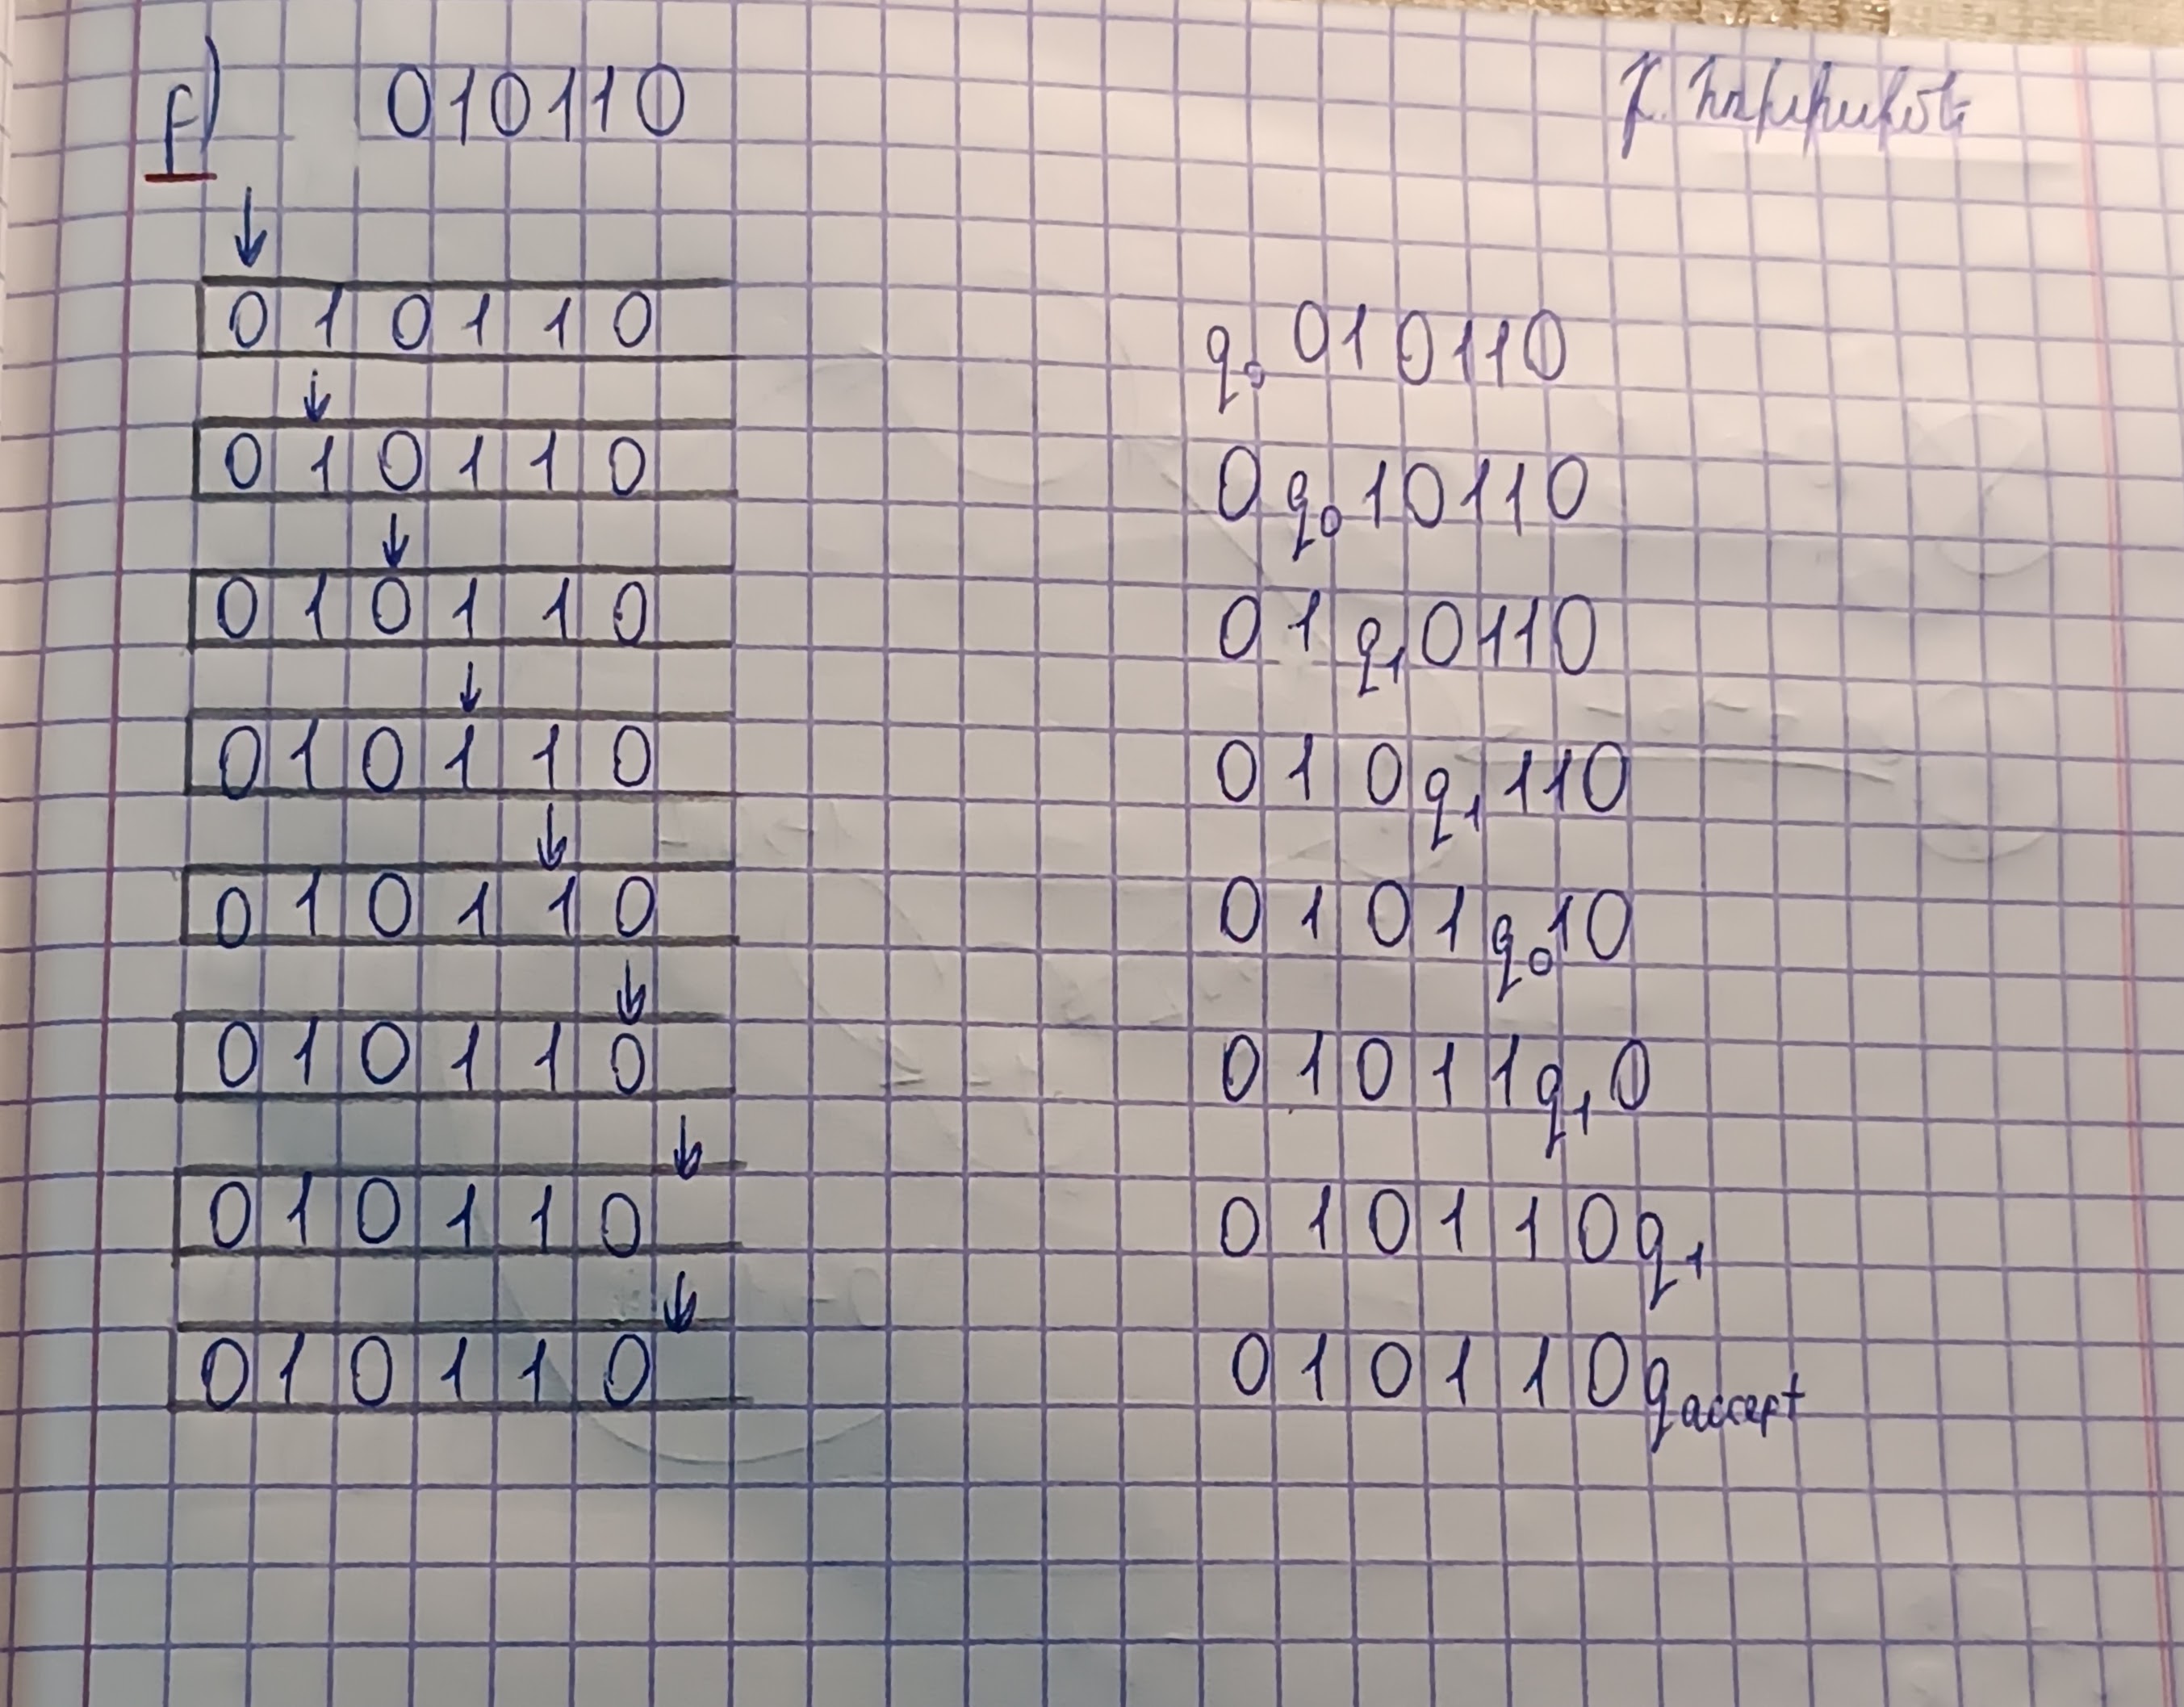 f) 010110
0 1 0 1 1 0 q₀ 010110
0 1 0 1 1 0 0 q₀ 10110
0 1 0 1 1 0 0 1 q₁ 0110
0 1 0 1 1 0 0 1 0 q₁ 110
0 1 0 1 1 0 0 1 0 1 q₀ 10
0 1 0 1 1 0 0 1 0 1 1 q₁ 0
0 1 0 1 1 0 0 1 0 1 1 0 q₁
0 1 0 1 1 0 0 1 0 1 1 0 q accept